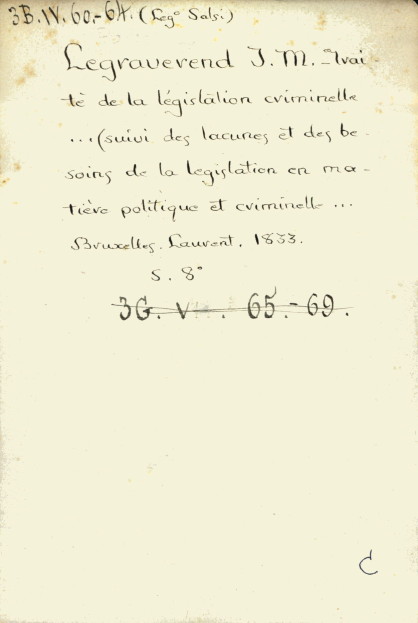 3B.IV.60.-64. (Leg° Salsi)
Legraverend J. M. - Trai-
té de la législation criminelle
...(suivi des lacunes et des be-
soins de la legislation en ma-
tière politique et criminelle ...
Bruxelles. Laurent. 1833.
S. 8°
3G. V . 65.-69.
C